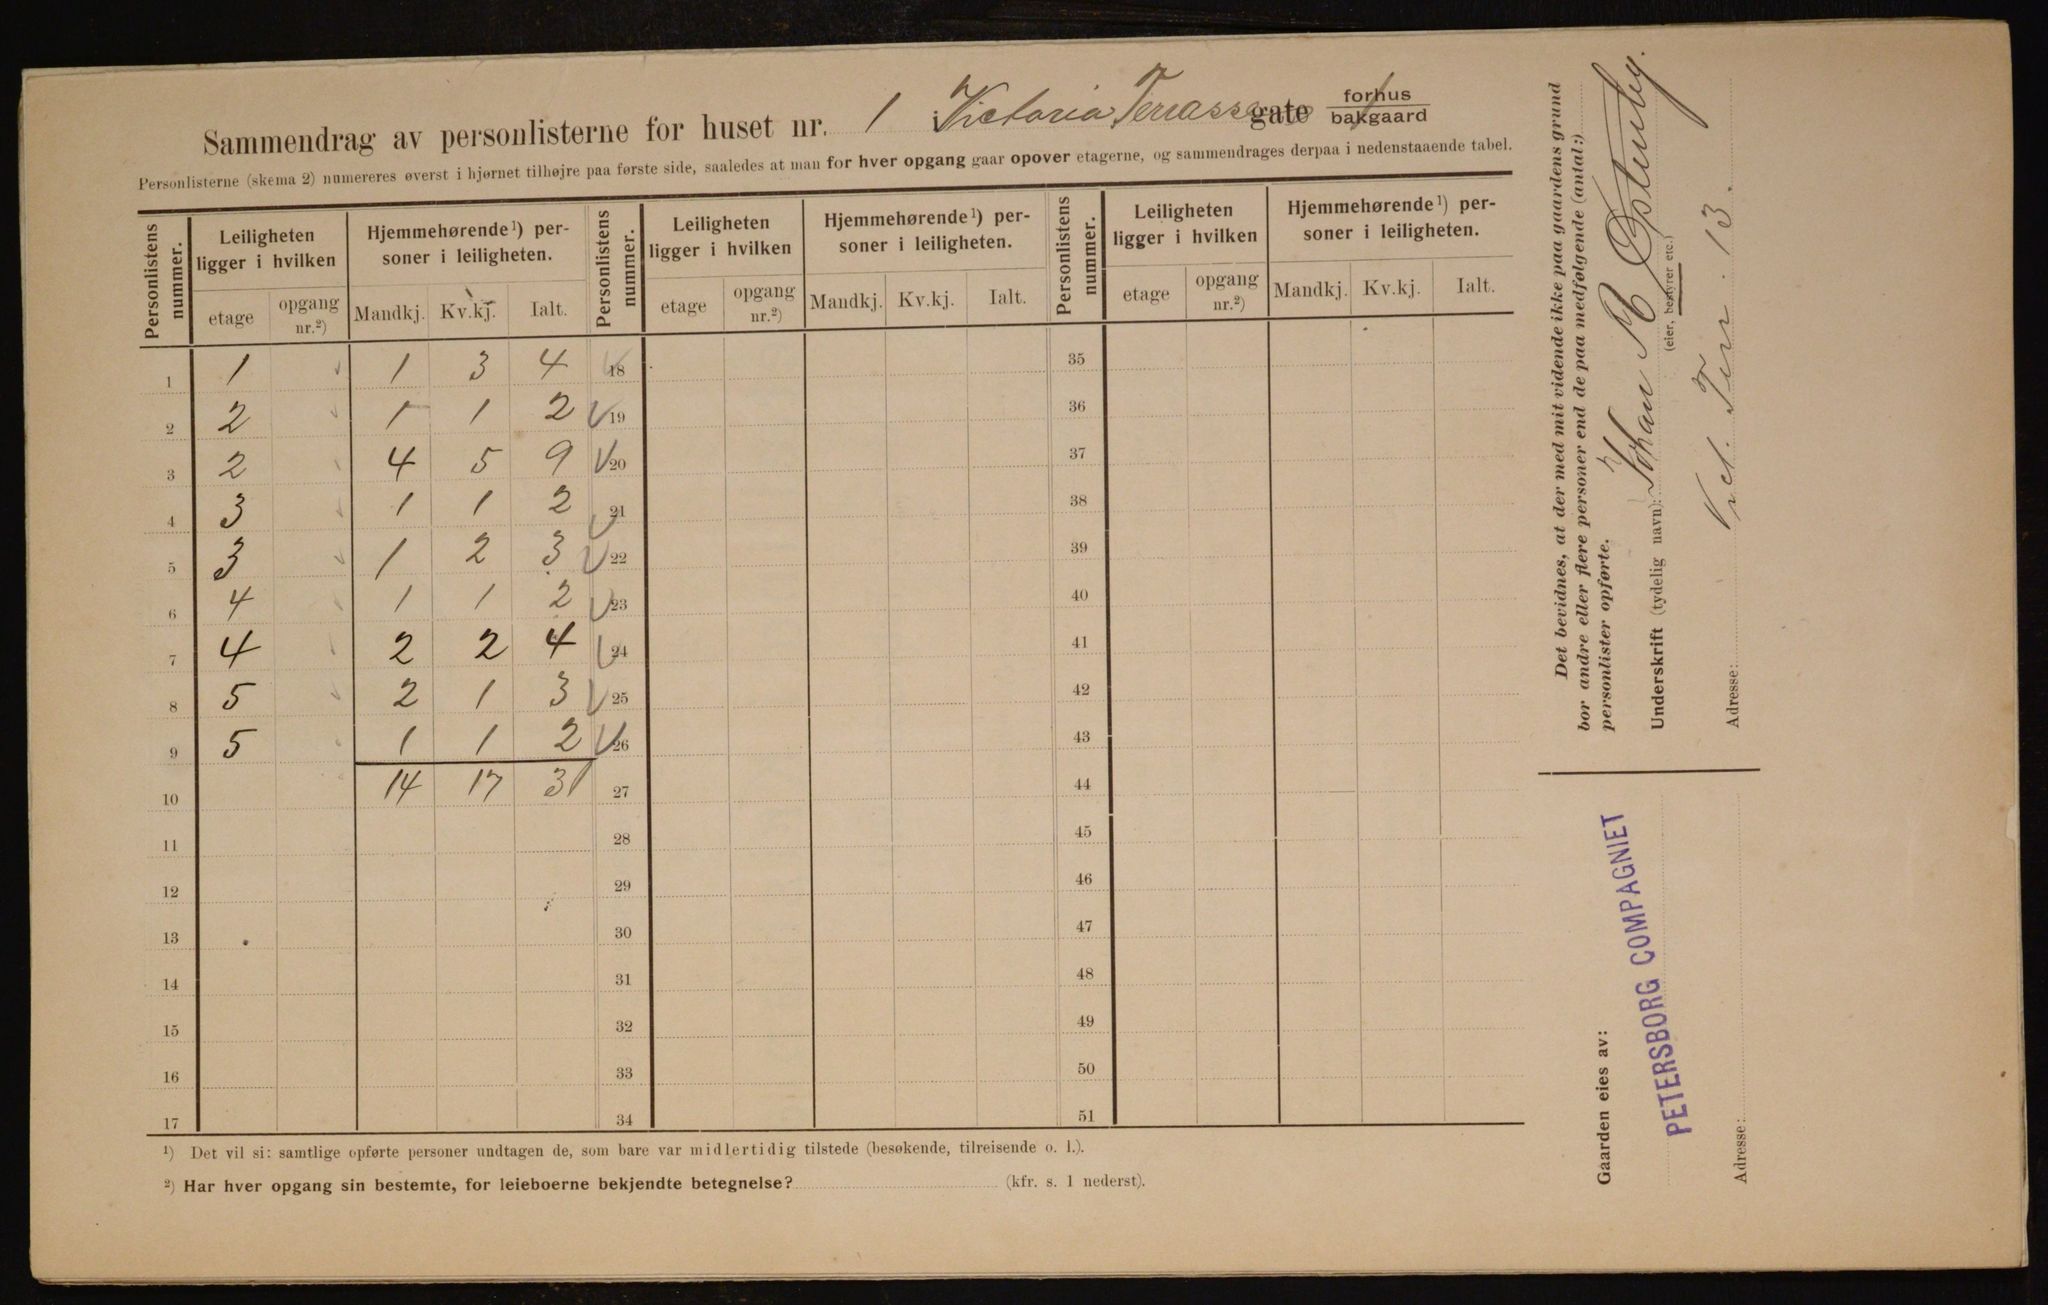 Sammendrag av personlisterne for huset nr. 1 i Victoria Terrasse gate forhus bakgaard
Personlisterne (skema 2) numereres øverst i hjørnet tilhøjre paa første side, saaledes at man for hver opgang gaar opover etagerne, og sammendrages derpaa i nedenstaaende tabel.
Personlistens nummer. Leiligheten ligger i hvilken Hjemmehørende¹) personer i leiligheten. Personlistens nummer. Leiligheten ligger i hvilken Hjemmehørende¹) personer i leiligheten. Personlistens nummer. Leiligheten ligger i hvilken Hjemmehørende¹) personer i leiligheten.
etage opgang nr.²) Mandkj. Kv.kj. Ialt. etage opgang nr.²) Mandkj. Kv.kj. Ialt. etage opgang nr.²) Mandkj. Kv.kj. Ialt.
1 1 1 3 4 18 35
2 2 1 1 2 19 36
3 2 4 5 9 20 37
4 3 1 1 2 21 38
5 3 1 2 3 22 39
6 4 1 1 2 23 40
7 4 2 2 4 24 41
8 5 2 1 3 25 42
9 5 1 1 2 26 43
10 14 17 31 27 44
11 28 45
12 29 46
13 30 47
14 31 48
15 32 49
16 33 50
17 34 51
¹) Det vil si: samtlige opførte personer undtagen de, som bare var midlertidig tilstede (besøkende, tilreisende o. l.).
²) Har hver opgang sin bestemte, for leieboerne bekjendte betegnelse? (kfr. s. 1 nederst).
Det bevidnes, at der med mit vidende ikke paa gaardens grund
bor andre eller flere personer end de paa medfølgende (antal:)
personlister opførte.
Underskrift (tydelig navn): Johan
(eier, bestyrer etc.)
Adresse: Vict. Terr. 13.
Gaarden eies av:
PETERSBORG COMPAGNIET
Adresse: